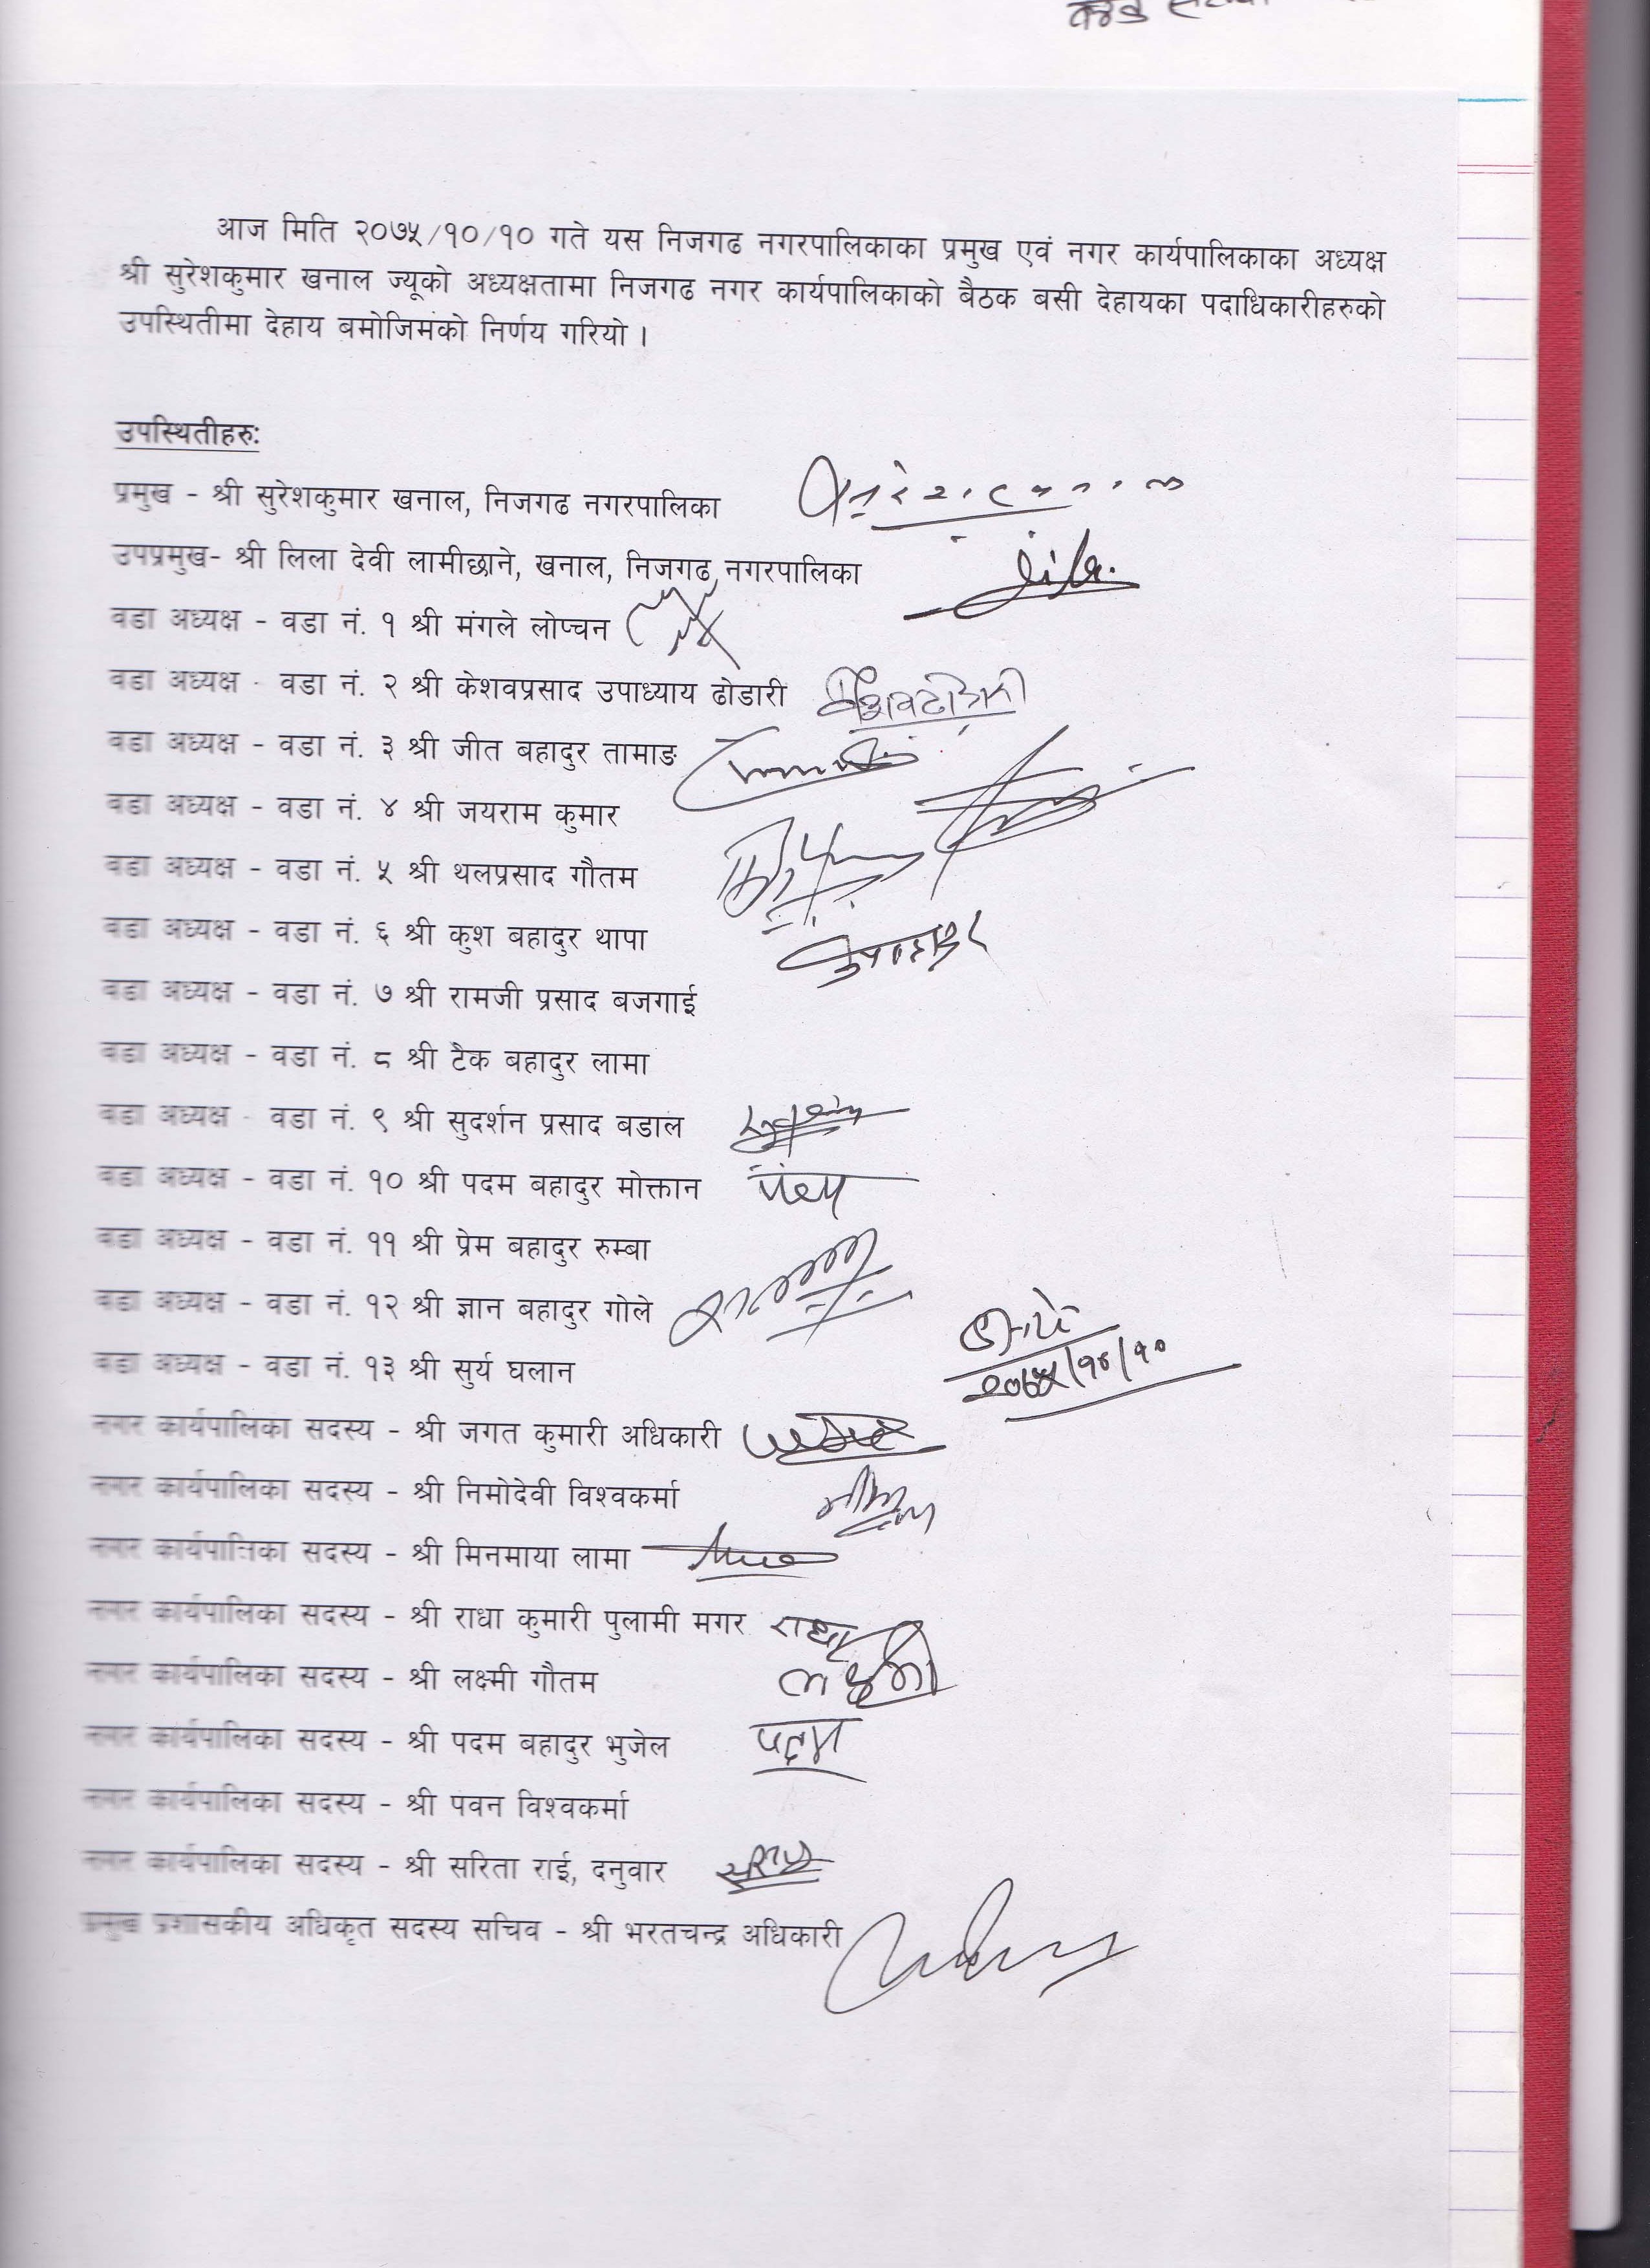 आज मिति २०७५/१०/१० गते यस निजगढ नगरपालिकाका प्रमुख एवं नगर कार्यपालिकाका अध्यक्ष
श्री सुरेशकुमार खनाल ज्यूको अध्यक्षतामा निजगढ नगर कार्यपालिकाको बैठक बसी देहायका पदाधिकारीहरुको
उपस्थितीमा देहाय बमोजिमको निर्णय गरियो ।
उपस्थितीहरु:
प्रमुख - श्री सुरेशकुमार खनाल, निजगढ नगरपालिका
उपप्रमुख- श्री लिला देवी लामीछाने, खनाल, निजगढ नगरपालिका
वडा अध्यक्ष - वडा नं. १ श्री मंगले लोप्चन
वडा अध्यक्ष - वडा नं. २ श्री केशवप्रसाद उपाध्याय ढोडारी
वडा अध्यक्ष - वडा नं. ३ श्री जीत बहादुर तामाङ
वडा अध्यक्ष - वडा नं. ४ श्री जयराम कुमार
वडा अध्यक्ष - वडा नं. ५ श्री थलप्रसाद गौतम
वडा अध्यक्ष - वडा नं. ६ श्री कुश बहादुर थापा
वडा अध्यक्ष - वडा नं. ७ श्री रामजी प्रसाद बजगाई
वडा अध्यक्ष - वडा नं. ८ श्री टैक बहादुर लामा
वडा अध्यक्ष - वडा नं. ९ श्री सुदर्शन प्रसाद बडाल
वडा अध्यक्ष - वडा नं. १० श्री पदम बहादुर मोक्तान
वडा अध्यक्ष - वडा नं. ११ श्री प्रेम बहादुर रुम्बा
वडा अध्यक्ष - वडा नं. १२ श्री ज्ञान बहादुर गोले
वडा अध्यक्ष - वडा नं. १३ श्री सुर्य घलान
२०७५/१०/१०
नगर कार्यपालिका सदस्य - श्री जगत कुमारी अधिकारी
नगर कार्यपालिका सदस्य - श्री निमोदेवी विश्वकर्मा
नगर कार्यपालिका सदस्य - श्री मिनमाया लामा
नगर कार्यपालिका सदस्य - श्री राधा कुमारी पुलामी मगर राधा
नगर कार्यपालिका सदस्य - श्री लक्ष्मी गौतम लक्ष्मी
नगर कार्यपालिका सदस्य - श्री पदम बहादुर भुजेल पदम
नगर कार्यपालिका सदस्य - श्री पवन विश्वकर्मा
नगर कार्यपालिका सदस्य - श्री सरिता राई, दनुवार
प्रमुख प्रशासकीय अधिकृत सदस्य सचिव - श्री भरतचन्द्र अधिकारी